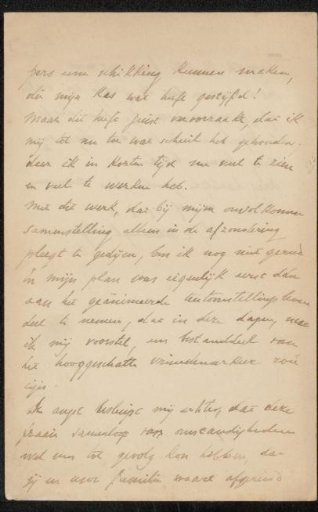 pers een schikking kunnen maken,
die mijn kas wat heeft gestijfd!
Maar dit heeft juist veroorzaakt, dat ik
mij tot nu toe wat schuil heb gehouden
daar ik in korten tijd nu veel te zien
en veel te werken heb.
Met die werk, dat bij mijn onvolkomen
samenstelling alleen in de afzondering
pleegt te gedijen, ben ik nog niet gereed
en mijn plan was eigenlijk eerst dan
aan het geanimeerde tentoonstellingsleven
deel te nemen, dat in deze dagen, naar
ik mij voorstel, een bestanddeel van
het hooggeschatte vriendenverkeer zou
zijn.
De angst bestuipt mij echter, dat deze
fraaie samenloop van omstandigheden
wel eens tot gevolg kon hebben, dat
zij en uwe familie waart afgereisd